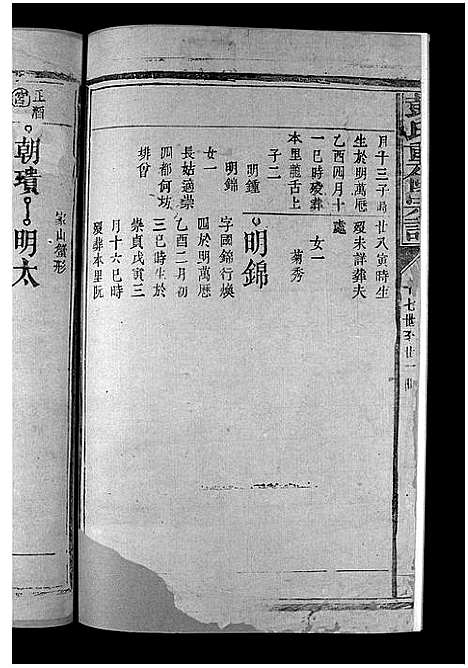 彭氏
十七世至廿一世
月十三子時
生於明萬厯
乙酉四月十
一巳時歿葬
本里龍舌上
子二
明鍾
明錦
女一
長姑適崇
四都何坊
排曾
廿八寅時生
歿未詳葬夫
處
女一
菊秀
明錦
字國錦行煥
四於明萬厯
乙酉二月初
三巳時生於
崇貞戊寅三
月十六巳時
歿葬本里阮
正酒
宮
朝璝
明太
家山蟹形